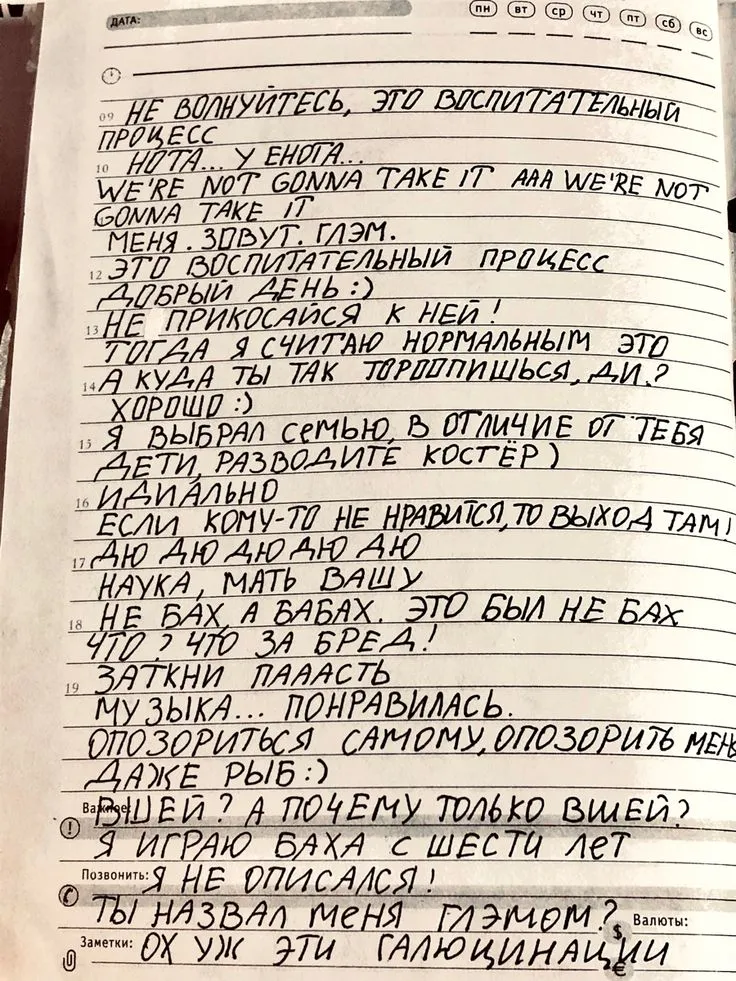 ДАТА: ПН ВТ СР ЧТ ПТ СБ ВС
09 НЕ ВОЛНУЙТЕСЬ, ЭТО ВОСПИТАТЕЛЬНЫЙ
ПРОЦЕСС
10 НОТА... У ЕНОТА...
WE'RE NOT GONNA TAKE IT AAA WE'RE NOT
GONNA TAKE IT
МЕНЯ. ЗОВУТ. ГЛЭМ.
12 ЭТО ВОСПИТАТЕЛЬНЫЙ ПРОЦЕСС
ДОБРЫЙ ДЕНЬ :)
13 НЕ ПРИКОСАЙСЯ К НЕЙ!
ТОГДА Я СЧИТАЮ НОРМАЛЬНЫМ ЭТО
14 А КУДА ТЫ ТАК ТОРООПИШЬСЯ, ДИ?
ХОРОШО :)
15 Я ВЫБРАЛ СЕМЬЮ, В ОТЛИЧИЕ ОТ ТЕБЯ
ДЕТИ, РАЗВОДИТЕ КОСТЁР)
16 ИДИАЛЬНО
ЕСЛИ КОМУ-ТО НЕ НРАВИТСЯ, ТО ВЫХОД ТАМ!
17 ДЮ ДЮ ДЮ ДЮ ДЮ
НАУКА, МАТЬ ВАШУ
18 НЕ БАХ, А БАБАХ. ЭТО БЫЛ НЕ БАХ
ЧТО? ЧТО ЗА БРЕД!
19 ЗАТКНИ ПАААСТЬ
МУЗЫКА... ПОНРАВИЛАСЬ.
ОПОЗОРИТЬСЯ САМОМУ, ОПОЗОРИТЬ МЕНЯ
ДАЖЕ РЫБ :)
Важное: ВШЕЙ? А ПОЧЕМУ ТОЛЬКО ВШЕЙ?
Я ИГРАЮ БАХА С ШЕСТИ ЛЕТ
Позвонить: Я НЕ ОПИСАЛСЯ!
ТЫ НАЗВАЛ МЕНЯ ГЛЭМОМ? Валюты:
$
Заметки: ОХ УЖ ЭТИ ГАЛЮЦИНАЦИИ
€